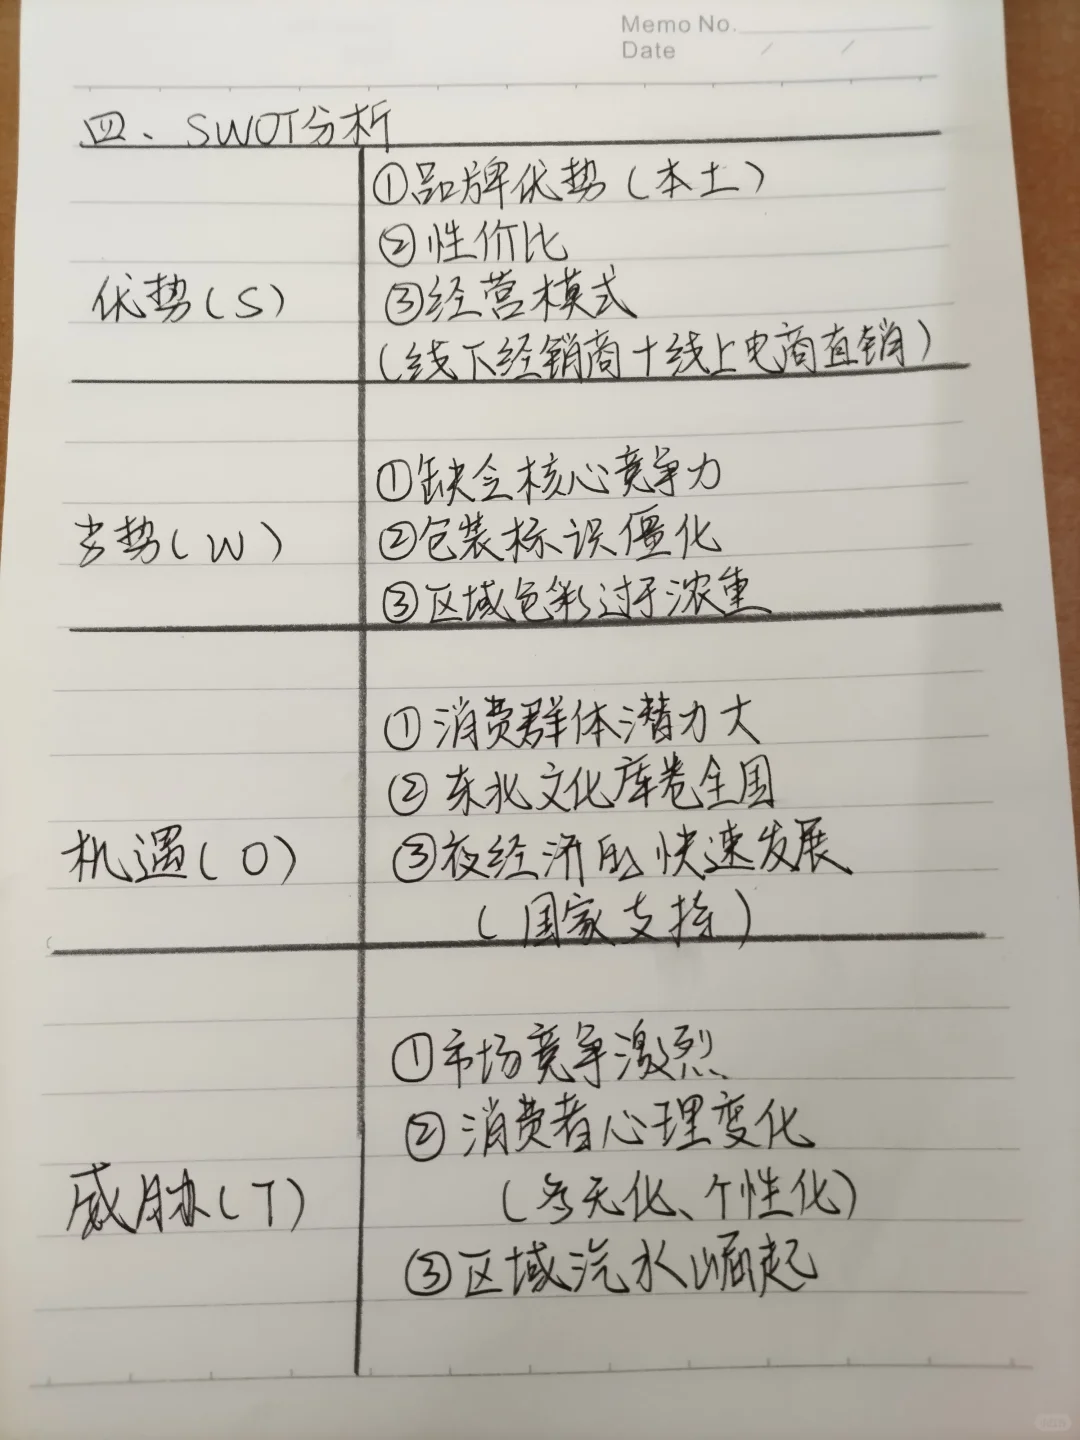 Memo No.
Date / /
四、SWOT分析
优势(S)
①品牌优势(本土)
②性价比
③经营模式
(线下经销商+线上电商直销)
劣势(W)
①缺乏核心竞争力
②包装标识僵化
③区域色彩过于浓重
机遇(O)
①消费群体潜力大
②东北文化席卷全国
③夜经济的快速发展
(国家支持)
威胁(T)
①市场竞争激烈
②消费者心理变化
(多元化、个性化)
③区域汽水崛起